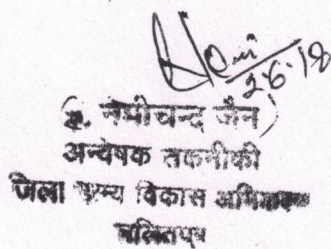 26.18
(इ. नेमीचन्द जैन)
अन्वेषक तकनीकी
जिला ग्राम्य विकास अभिकरण
ललितपुर